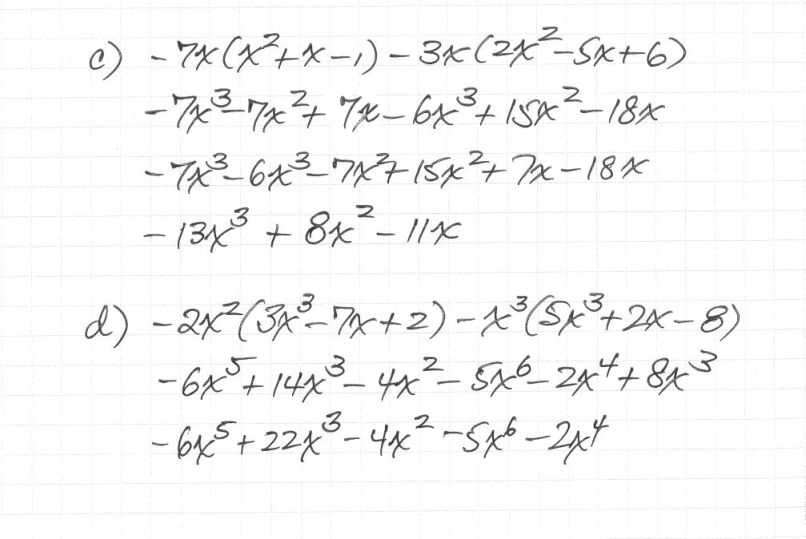 c) -7x(x²+x-1)-3x(2x²-5x+6)
-7x³-7x²+7x-6x³+15x²-18x
-7x³-6x³-7x²+15x²+7x-18x
-13x³+8x²-11x
d) -2x²(3x³-7x+2)-x³(5x³+2x-8)
-6x⁵+14x³-4x²-5x⁶-2x⁴+8x³
-6x⁵+22x³-4x²-5x⁶-2x⁴